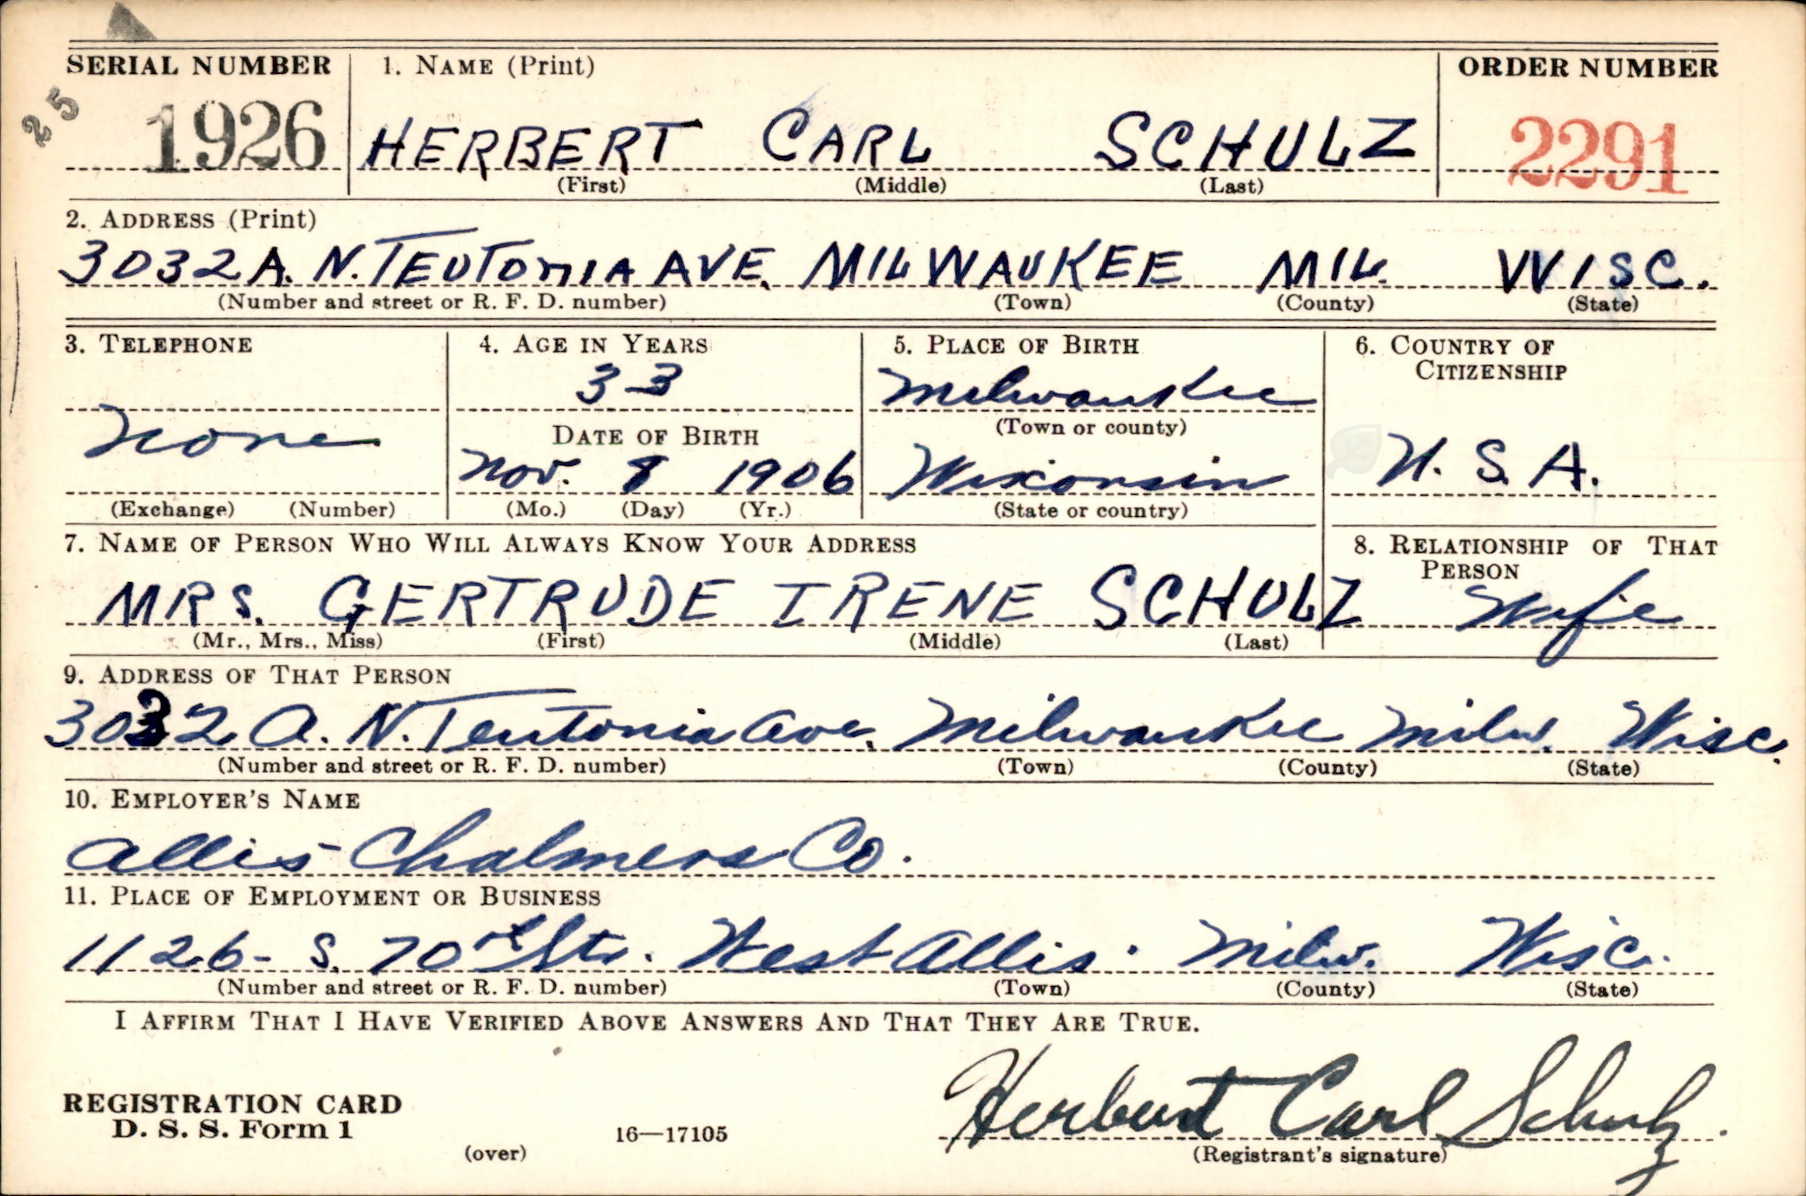 SERIAL NUMBER 1. NAME (Print) ORDER NUMBER
25 1926 HERBERT CARL SCHULZ 2291
(First) (Middle) (Last)
2. ADDRESS (Print)
3032 A. N. TEUTONIA AVE. MILWAUKEE MIL. WISC.
(Number and street or R. F. D. number) (Town) (County) (State)
3. TELEPHONE 4. AGE IN YEARS 5. PLACE OF BIRTH 6. COUNTRY OF
CITIZENSHIP
33 Milwaukee
DATE OF BIRTH (Town or county)
None Nov. 8 1906 Wisconsin U. S. A.
(Exchange) (Number) (Mo.) (Day) (Yr.) (State or country)
7. NAME OF PERSON WHO WILL ALWAYS KNOW YOUR ADDRESS 8. RELATIONSHIP OF THAT
PERSON
MRS. GERTRUDE IRENE SCHULZ Wife
(Mr., Mrs., Miss) (First) (Middle) (Last)
9. ADDRESS OF THAT PERSON
3032 A. N. Teutonia Ave. Milwaukee Milw. Wisc.
(Number and street or R. F. D. number) (Town) (County) (State)
10. EMPLOYER'S NAME
Allis Chalmers Co.
11. PLACE OF EMPLOYMENT OR BUSINESS
1126 - S. 70th Str. West Allis. Milw. Wisc.
(Number and street or R. F. D. number) (Town) (County) (State)
I AFFIRM THAT I HAVE VERIFIED ABOVE ANSWERS AND THAT THEY ARE TRUE.
REGISTRATION CARD
D. S. S. Form 1 16—17105 Herbert Carl Schulz.
(over) (Registrant's signature)